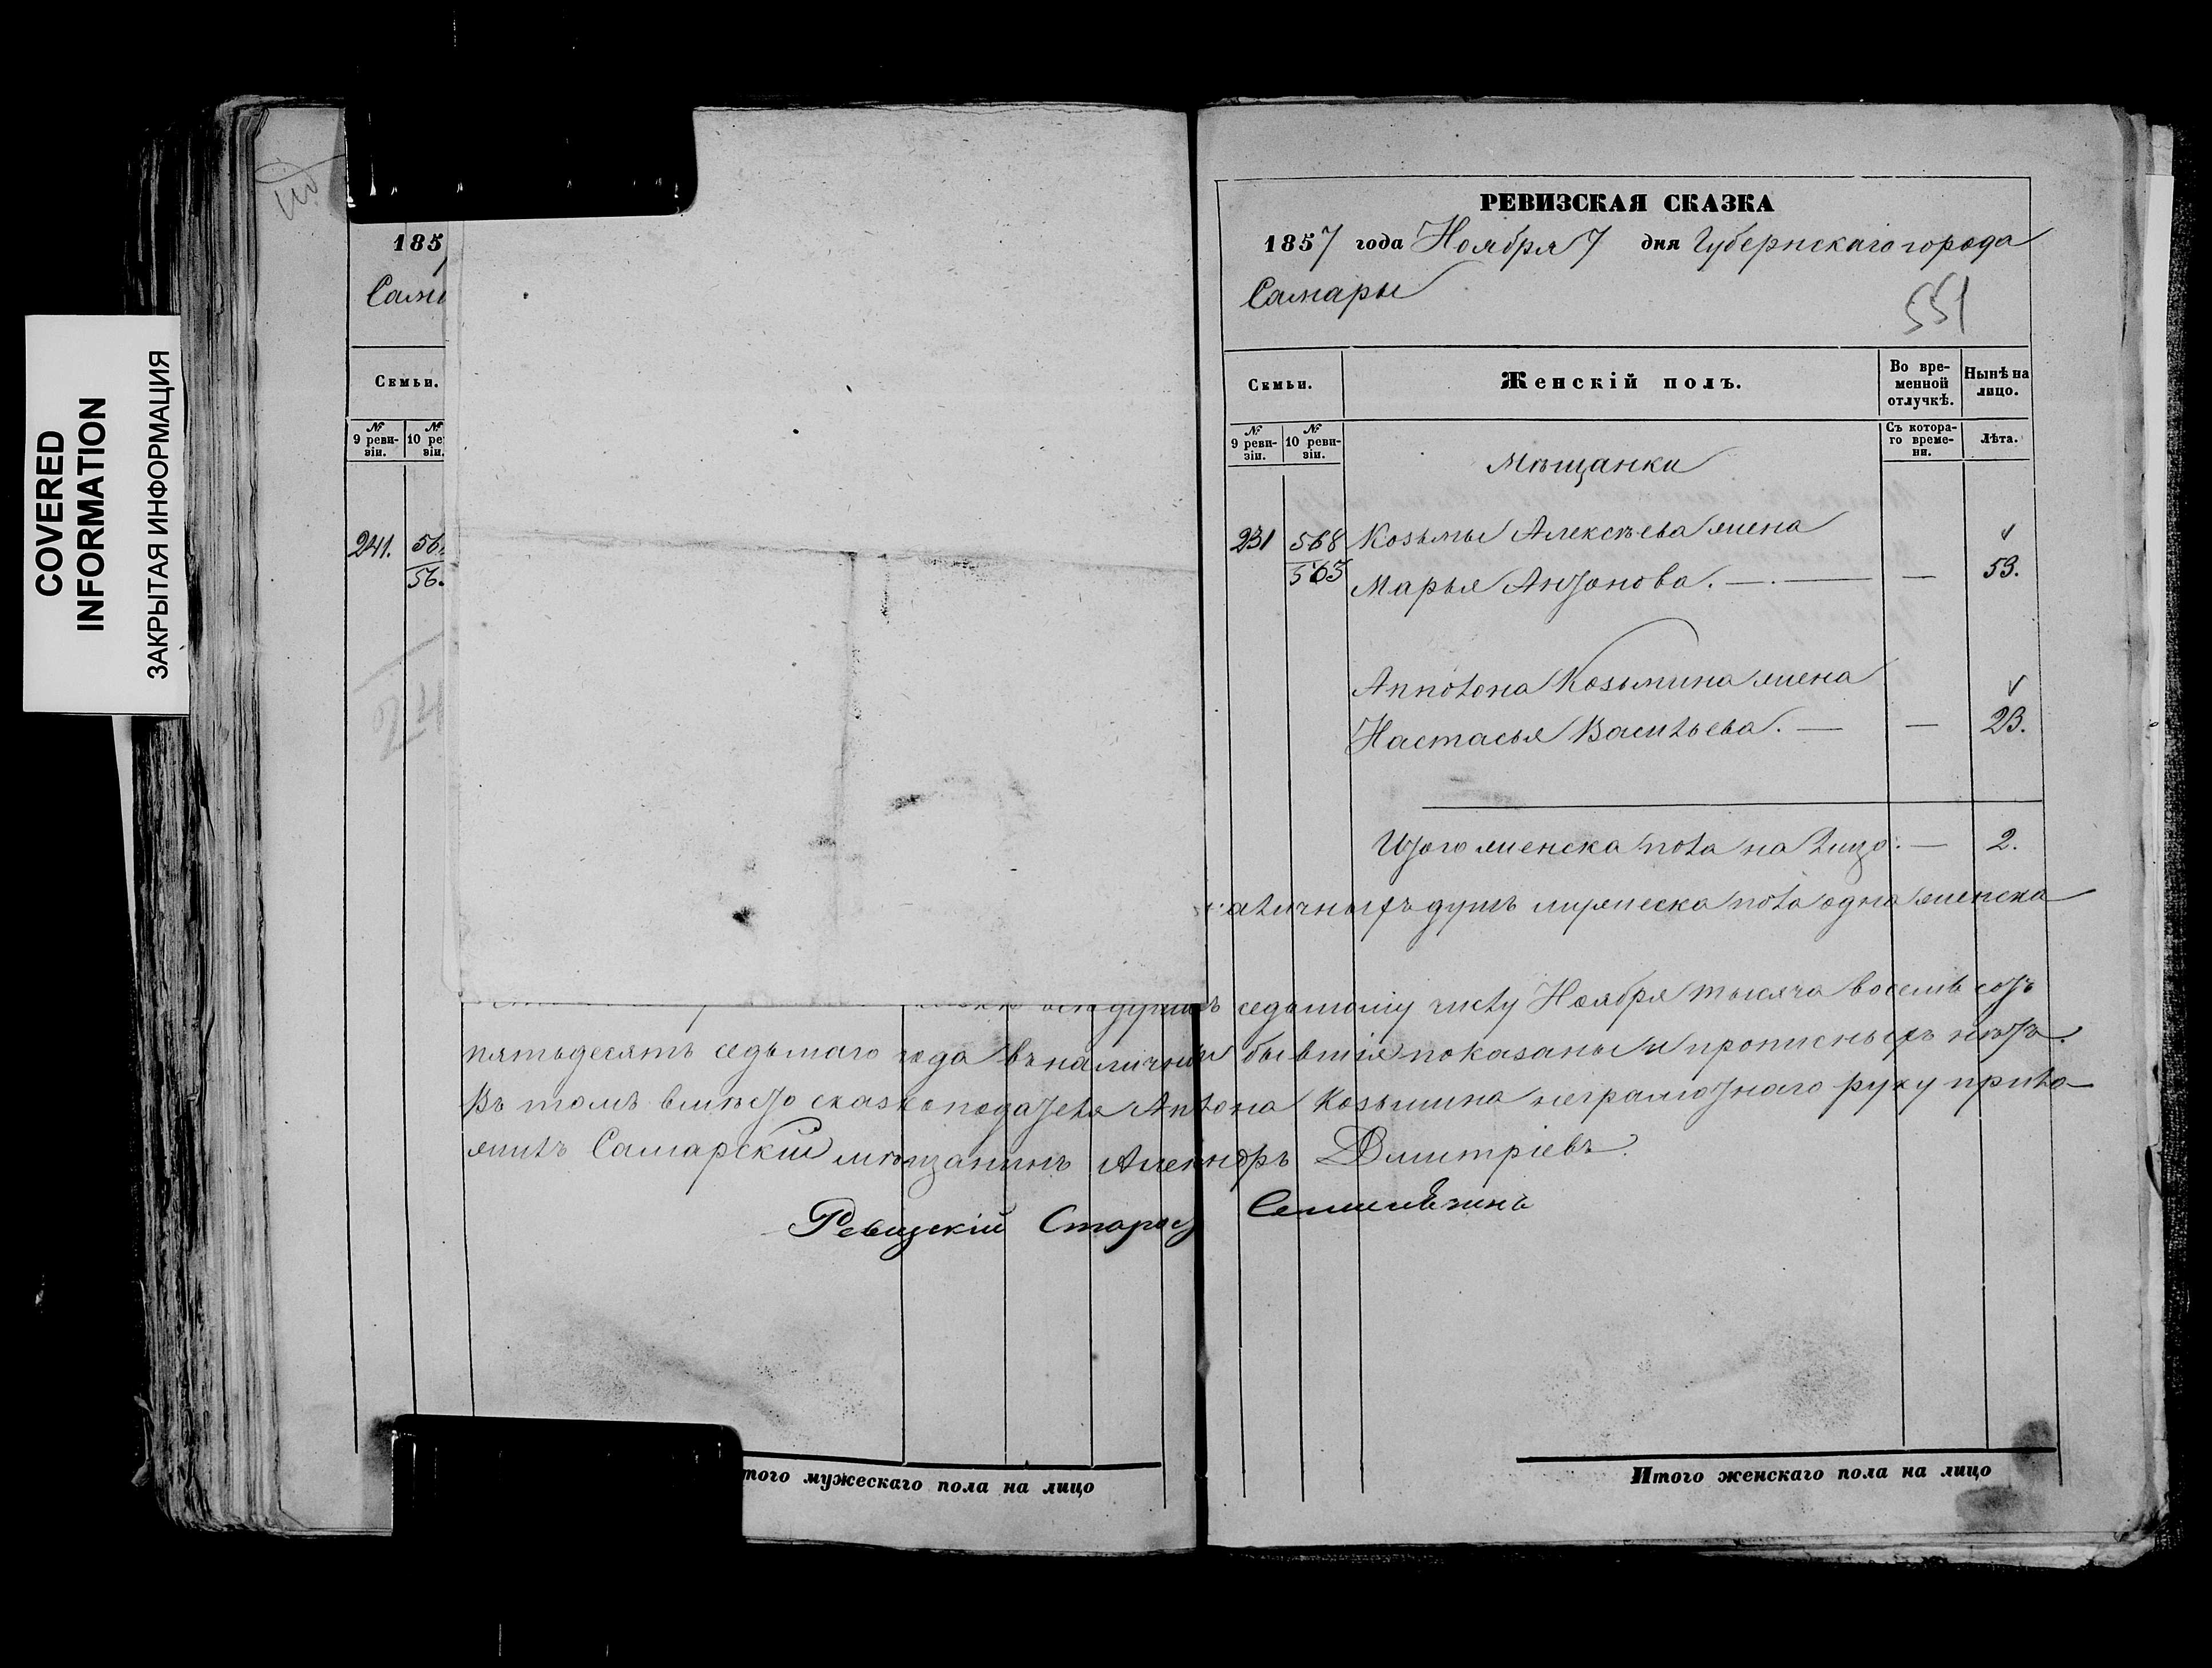 COVERED
INFORMATION
ЗАКРЫТАЯ ИНФОРМАЦИЯ
185
Сама
Семьи.
№ 9 реви-зіи.
№ 10 ре зіи.
241. 56
56.
24
РЕВИЗСКАЯ СКАЗКА
1857 года Ноября 7 дня Губернскаго города
Самары
551
Семьи.
Женскій полъ.
Во вре-менной отлучкѣ.
Нынѣ на лицо.
№ 9 реви-зіи.
№ 10 реви-зіи.
Съ котора-го време-ни.
Лѣта.
Мѣщанки
231 568 Козьмы Алексѣева жена
565 Марья Антонова. — — 53.
Антона Козьмина жена
Настасья Васильева. — — 23.
Итого женска пола на лицо. — 2.
аличныхъ душъ мужеска пола одна женска
седьмому числу Ноября тысяча восемь сотъ
пятьдесятъ седьмаго года въ наличніи бывшія показаны и прописныхъ нѣтъ.
Въ томъ вмѣсто сказкоподателя Антона Козьмина неграмотнаго руку прило
жилъ Самарскій мѣщанинъ Александръ Дмитріевъ.
Ревизскій Старос
того мужескаго пола на лицо
Итого женскаго пола на лицо